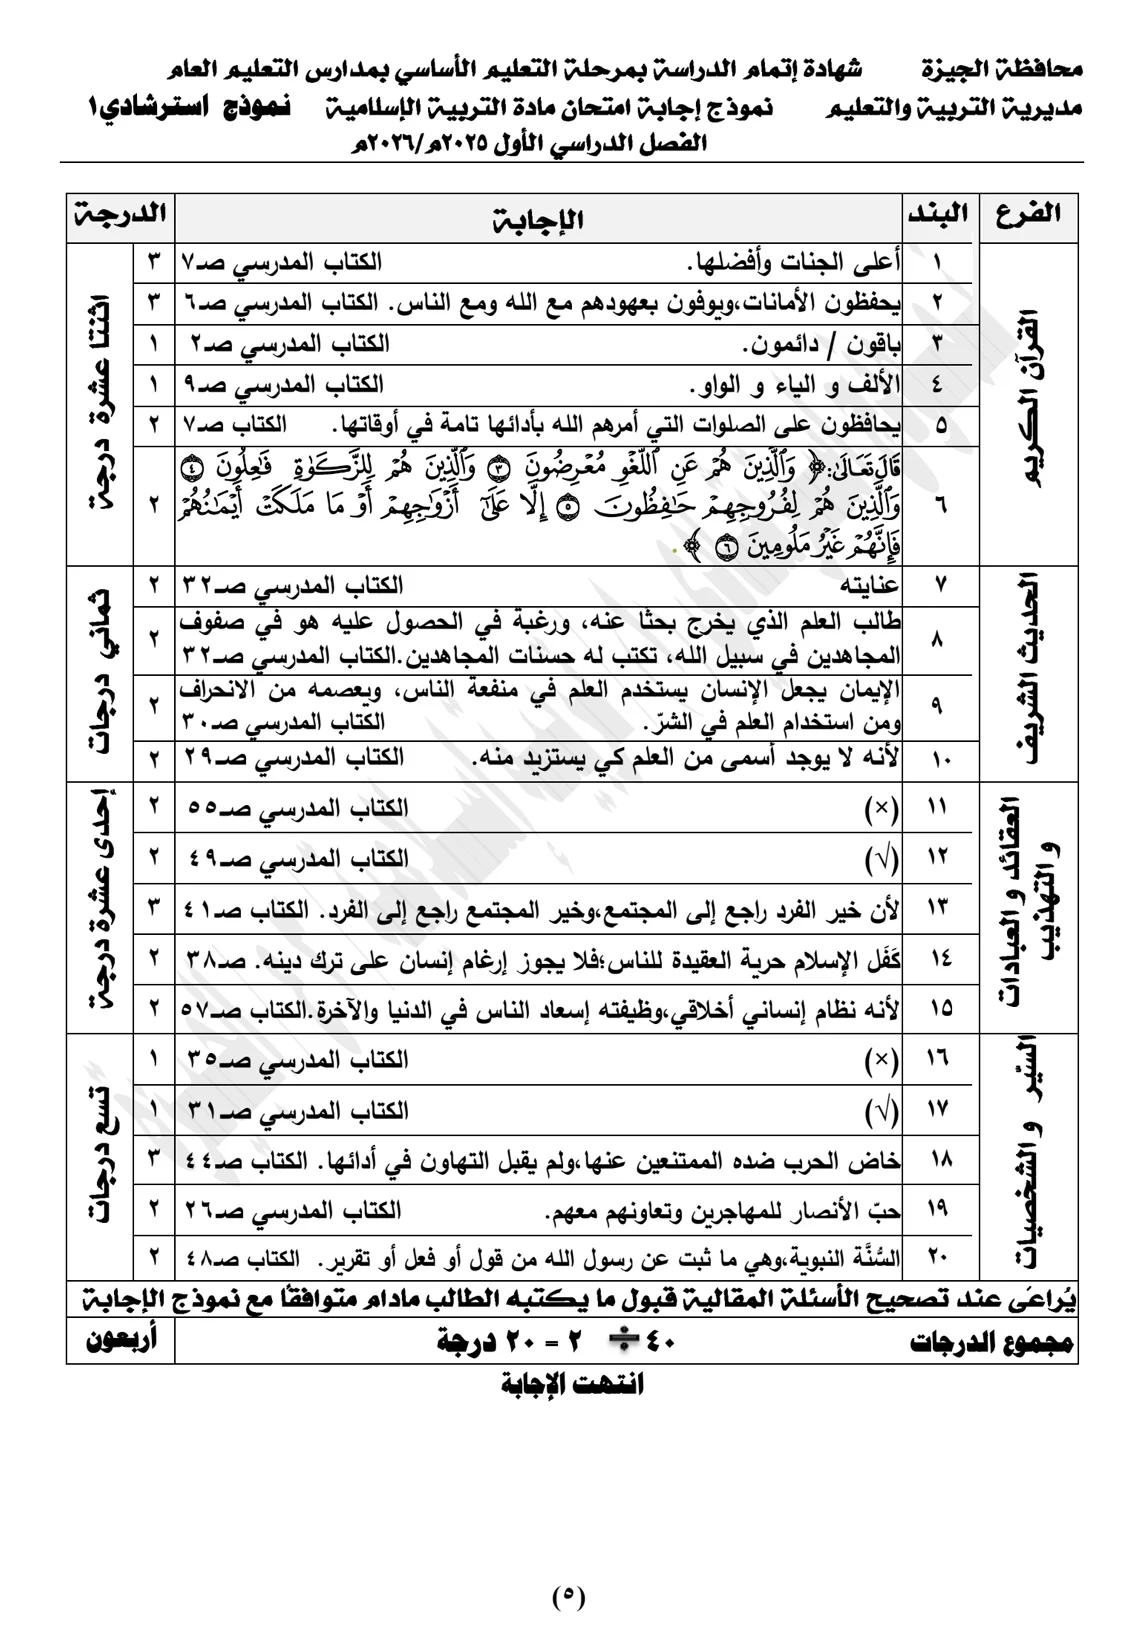 محافظة الجيزة شهادة إتمام الدراسة بمرحلة التعليم الأساسي بمدارس التعليم العام
مديرية التربية والتعليم نموذج إجابة امتحان مادة التربية الإسلامية نموذج استرشادي١
الفصل الدراسي الأول ٢٠٢٥م/٢٠٢٦م
الفرع البند الإجابة الدرجة
القرآن الكريم
اثنتا عشرة درجة
١ أعلى الجنات وأفضلها. الكتاب المدرسي صـ٧ ٣
٢ يحفظون الأمانات،ويوفون بعهودهم مع الله ومع الناس. الكتاب المدرسي صـ٦ ٣
٣ باقون / دائمون. الكتاب المدرسي صـ٢ ١
٤ الألف و الياء و الواو. الكتاب المدرسي صـ٩ ١
٥ يحافظون على الصلوات التي أمرهم الله بأدائها تامة في أوقاتها. الكتاب صـ٧ ٢
قَالَ تَعَالَىٰ: ﴿ وَٱلَّذِينَ هُمْ عَنِ ٱللَّغْوِ مُعْرِضُونَ ٣ وَٱلَّذِينَ هُمْ لِلزَّكَوٰةِ فَٰعِلُونَ ٤
٦ وَٱلَّذِينَ هُمْ لِفُرُوجِهِمْ حَٰفِظُونَ ٥ إِلَّا عَلَىٰٓ أَزْوَٰجِهِمْ أَوْ مَا مَلَكَتْ أَيْمَٰنُهُمْ ٢
فَإِنَّهُمْ غَيْرُ مَلُومِينَ ٦ ﴾.
الحديث الشريف
ثماني درجات
٧ عنايته الكتاب المدرسي صـ٣٢ ٢
٨ طالب العلم الذي يخرج بحثًا عنه، ورغبة في الحصول عليه هو في صفوف ٢
المجاهدين في سبيل الله، تكتب له حسنات المجاهدين.الكتاب المدرسي صـ٣٢
٩ الإيمان يجعل الإنسان يستخدم العلم في منفعة الناس، ويعصمه من الانحراف ٢
ومن استخدام العلم في الشرّ. الكتاب المدرسي صـ٣٠
١٠ لأنه لا يوجد أسمى من العلم كي يستزيد منه. الكتاب المدرسي صـ٢٩ ٢
العقائد و العبادات
و التهذيب
إحدى عشرة درجة
١١ (×) الكتاب المدرسي صـ٥٥ ٢
١٢ (√) الكتاب المدرسي صـ٤٩ ٢
١٣ لأن خير الفرد راجع إلى المجتمع،وخير المجتمع راجع إلى الفرد. الكتاب صـ٤١ ٣
١٤ كَفَل الإسلام حرية العقيدة للناس؛فلا يجوز إرغام إنسان على ترك دينه. صـ٣٨ ٢
١٥ لأنه نظام إنساني أخلاقي،وظيفته إسعاد الناس في الدنيا والآخرة.الكتاب صـ٥٧ ٢
السّير و الشخصيات
تسع درجات
١٦ (×) الكتاب المدرسي صـ٣٥ ١
١٧ (√) الكتاب المدرسي صـ٣١ ١
١٨ خاض الحرب ضده الممتنعين عنها،ولم يقبل التهاون في أدائها. الكتاب صـ٤٤ ٣
١٩ حبّ الأنصار للمهاجرين وتعاونهم معهم. الكتاب المدرسي صـ٢٦ ٢
٢٠ السُّنَّة النبوية،وهي ما ثبت عن رسول الله من قول أو فعل أو تقرير. الكتاب صـ٤٨ ٢
يُراعَى عند تصحيح الأسئلة المقالية قبول ما يكتبه الطالب مادام متوافقًا مع نموذج الإجابة
مجموع الدرجات ٤٠ ÷ ٢ = ٢٠ درجة أربعون
انتهت الإجابة
(٥)